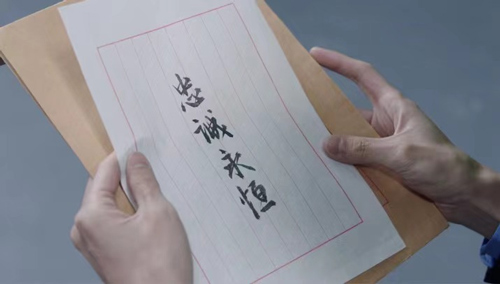 忠诚永恒